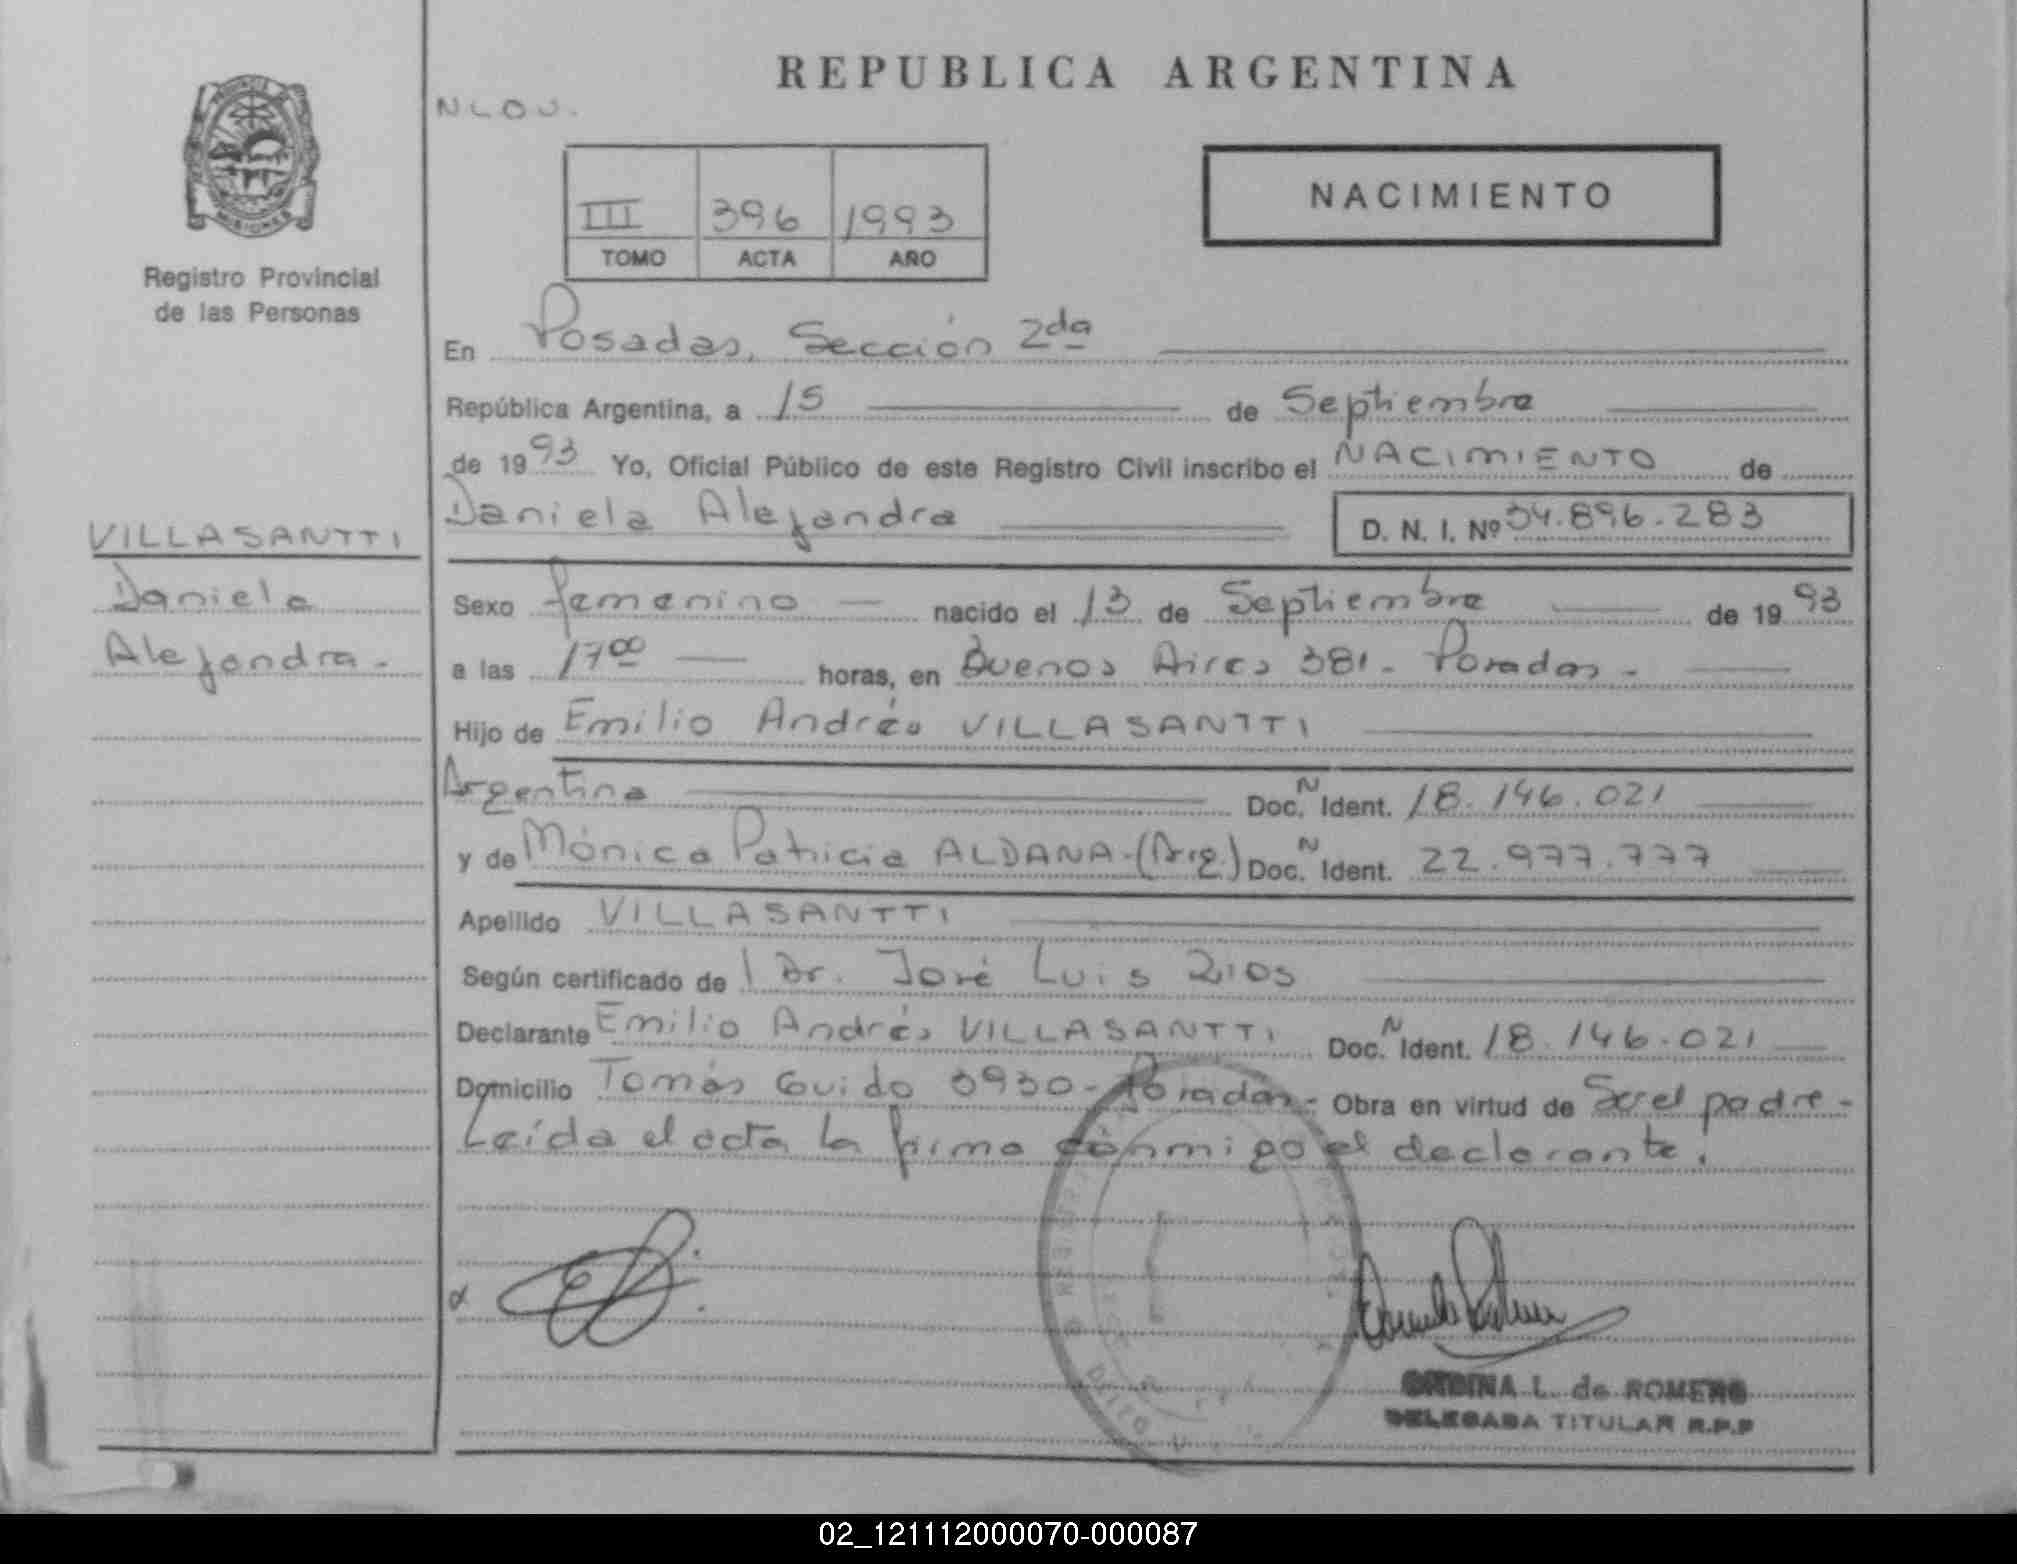 REPUBLICA ARGENTINA
PROVINCIA DE
MISIONES
Registro Provincial
de las Personas
III 396 1993
TOMO ACTA AÑO
NACIMIENTO
En Posadas, Sección 2da
República Argentina, a 15 de Septiembre
de 1993 Yo, Oficial Público de este Registro Civil inscribo el NACIMIENTO de
Daniela Alejandra D. N. I. Nº 34.896.283
VILLASANTTI
Daniela
Alejandra.-
Sexo femenino nacido el 13 de Septiembre de 1993
a las 17 00 horas, en Buenos Aires 381- Posadas -
Hijo de Emilio Andrés VILLASANTTI
Argentina Doc. N Ident. 18.146.021
y de Mónica Patricia ALDANA-(Arg.) Doc. N Ident. 22.977.777
Apellido VILLASANTTI
Según certificado de l Dr. José Luis Rios
Declarante Emilio Andrés VILLASANTTI Doc. N Ident. 18.146.021
Domicilio Tomás Guido 3930- Posadas- Obra en virtud de Ser el padre-
Leída el acta la firma conmigo el declarante.
L. de ROMERO
DELEGADA TITULAR R.P.P
02_121112000070-000087